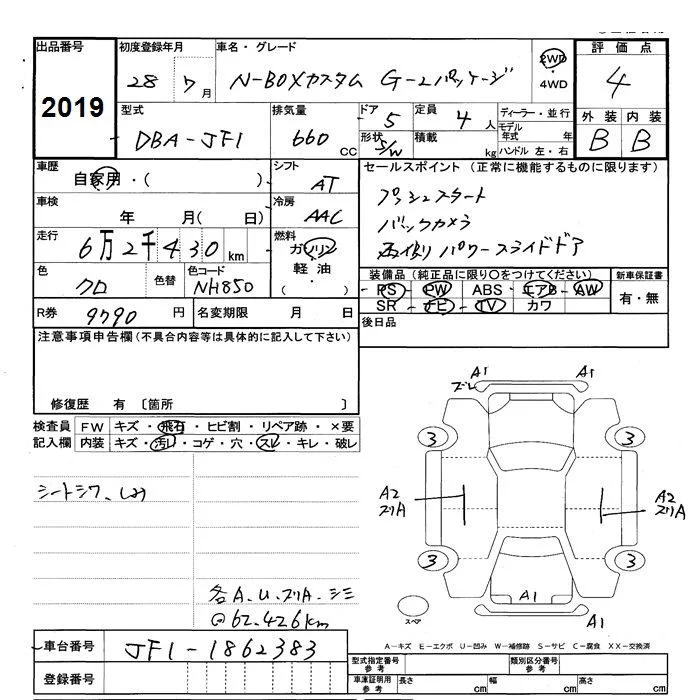 出品番号 初度登録年月 車名・グレード 評価点
2019 28年 7月 N-BOXカスタム G-Lパッケージ 2WD・4WD 4
型式 排気量 ドア 5 定員 4人 ディーラー・並行 外装 内装
DBA-JF1 660cc 形状 S/W 積載 kg モデル年式 年 ハンドル 左・右 B B
車歴 自家用・( ) シフト AT セールスポイント (正常に機能するものに限ります)
車検 年 月( 日) 冷房 AAC プッシュスタート
バックカメラ
走行 6万2千430km 燃料 ガソリン・軽油・( ) 両側パワースライドドア
色 クロ 色替 色コード NH850 装備品 (純正品に限り〇をつけてください) 新車保証書
PS PW ABS エアB AW 有・無
SR ナビ TV カワ
R券 9790円 名変期限 月 日 後日品
注意事項申告欄 (不具合内容等は具体的に記入して下さい)
修復歴 有 〔箇所 〕
検査員 FW キズ・飛石・ヒビ割・リペア跡・×要
記入欄 内装 キズ・汚れ・コゲ・穴・スレ・キレ・破レ
シートシワ、しみ
各A.U.スリA.シミ
@62.426km
A1 A1
ズレ
3 3
A2 A2
スリA スリA
3 3
A1
A1
スペア
A-キズ E-エクボ U-凹み W-補修跡 S-サビ C-腐食 XX-交換済
車台番号 JF1-1862383
登録番号
型式指定番号 参考 類別区分番号 参考
車庫証明用 参考 長さ cm 幅 cm 高さ cm